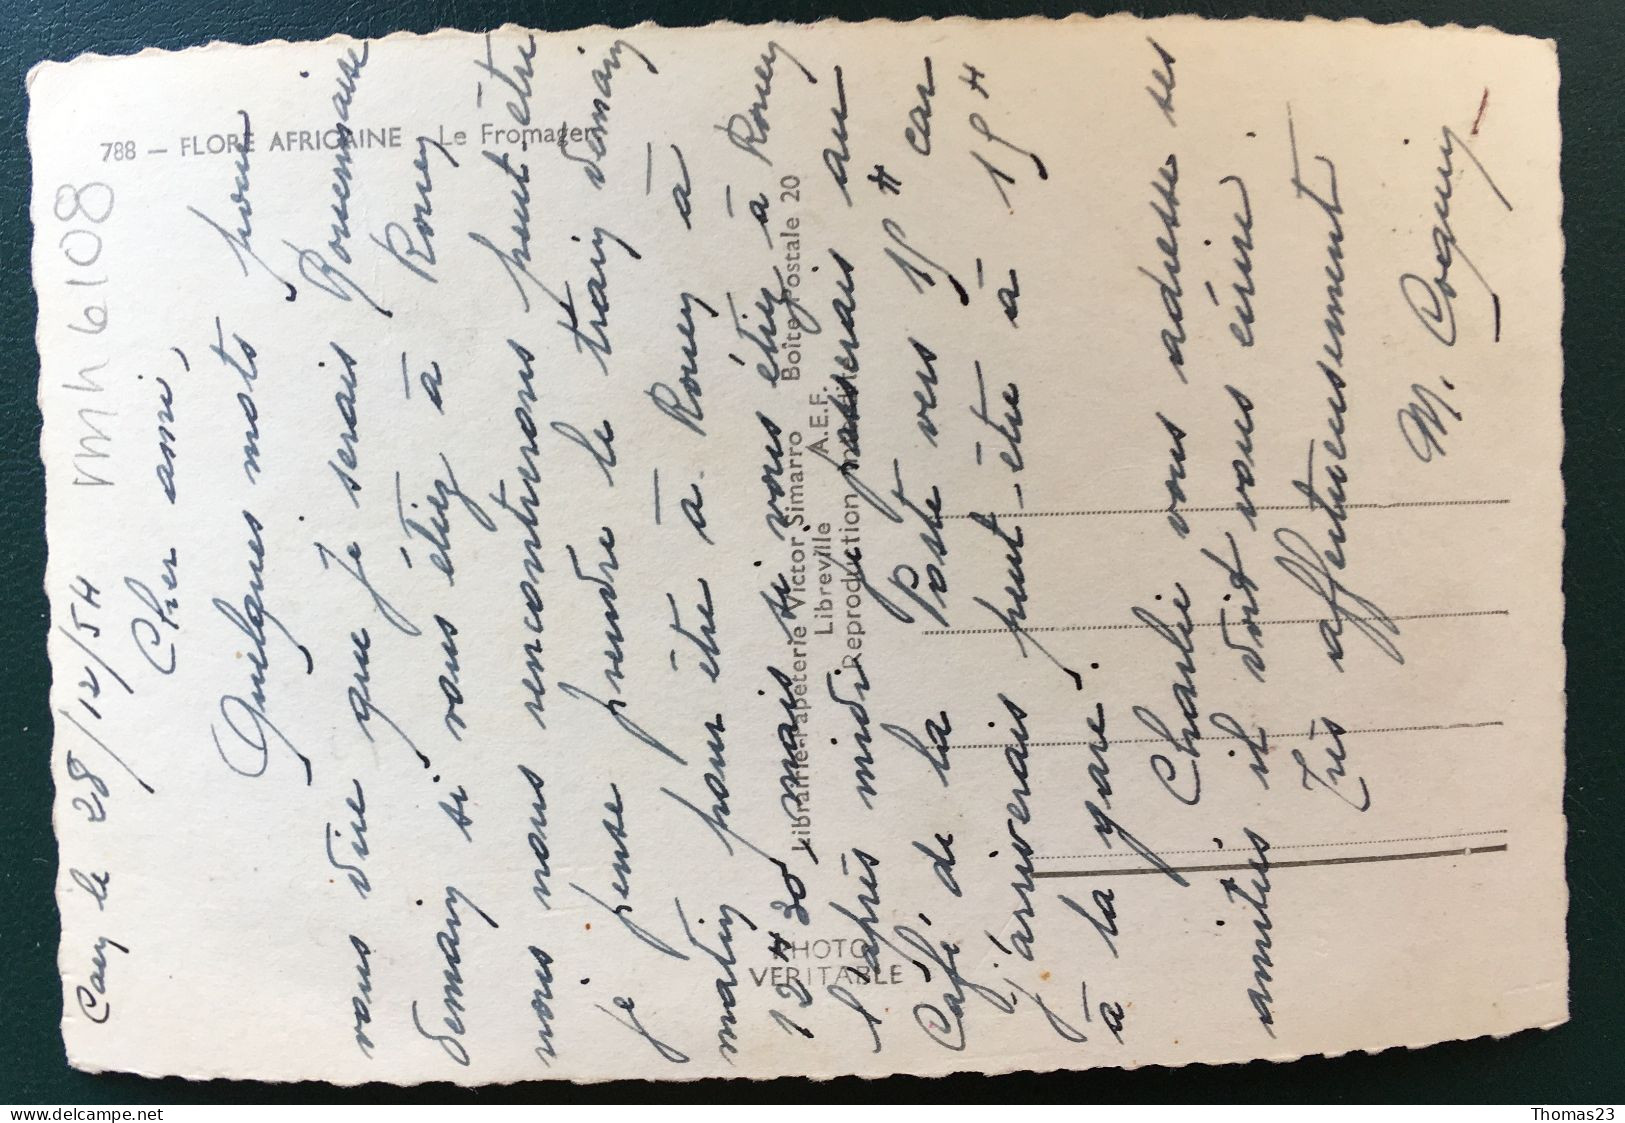 788 — FLORE AFRICAINE Le Fromager
Librairie-Papeterie Victor Simarro Boîte Postale 20
Libreville A.E.F.
Reproduction interdite
PHOTO
VERITABLE
vmh6108
Cany le 28/12/54
Cher ami,
Quelques mots pour
vous dire que je serais Rouennaise
demain si vous étiez à Rouen
nous nous rencontrerons peut-être
je pense prendre le train demain
matin pour être à Rouen à
12H30, mais si vous étiez à Rouen
l'après midi je passerais au
Café de la Poste vers 15H car
j'arriverais peut-être à 15H
à la gare.
Charlie vous adresse ses
amitiés il doit vous écrire
Très affectueusement
M. Coquin
Thomas23
delcampe.net